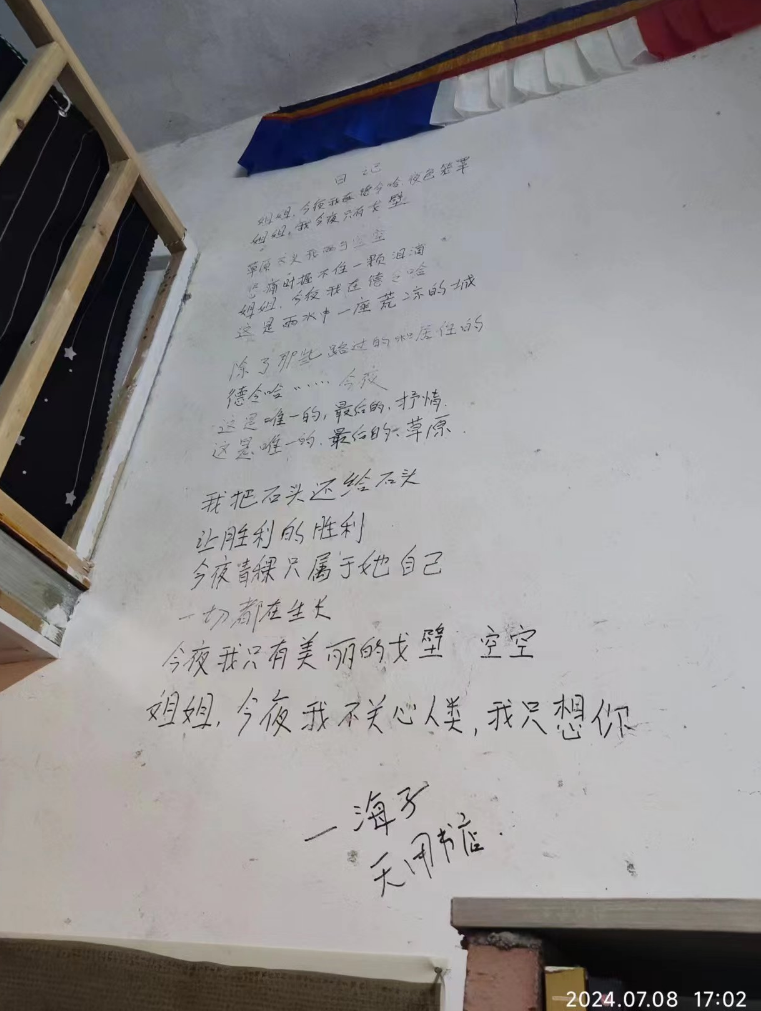 日记
姐姐,今夜我在德令哈,夜色笼罩
姐姐,我今夜只有戈壁
草原尽头我两手空空
悲痛时握不住一颗泪滴
姐姐,今夜我在德令哈
这是雨水中一座荒凉的城
除了那些路过的和居住的
德令哈……今夜
这是唯一的,最后的,抒情.
这是唯一的,最后的,草原.
我把石头还给石头
让胜利的胜利
今夜青稞只属于她自己
一切都在生长
今夜我只有美丽的戈壁 空空
姐姐,今夜我不关心人类,我只想你
—海子
书店.
2024.07.08 17:02